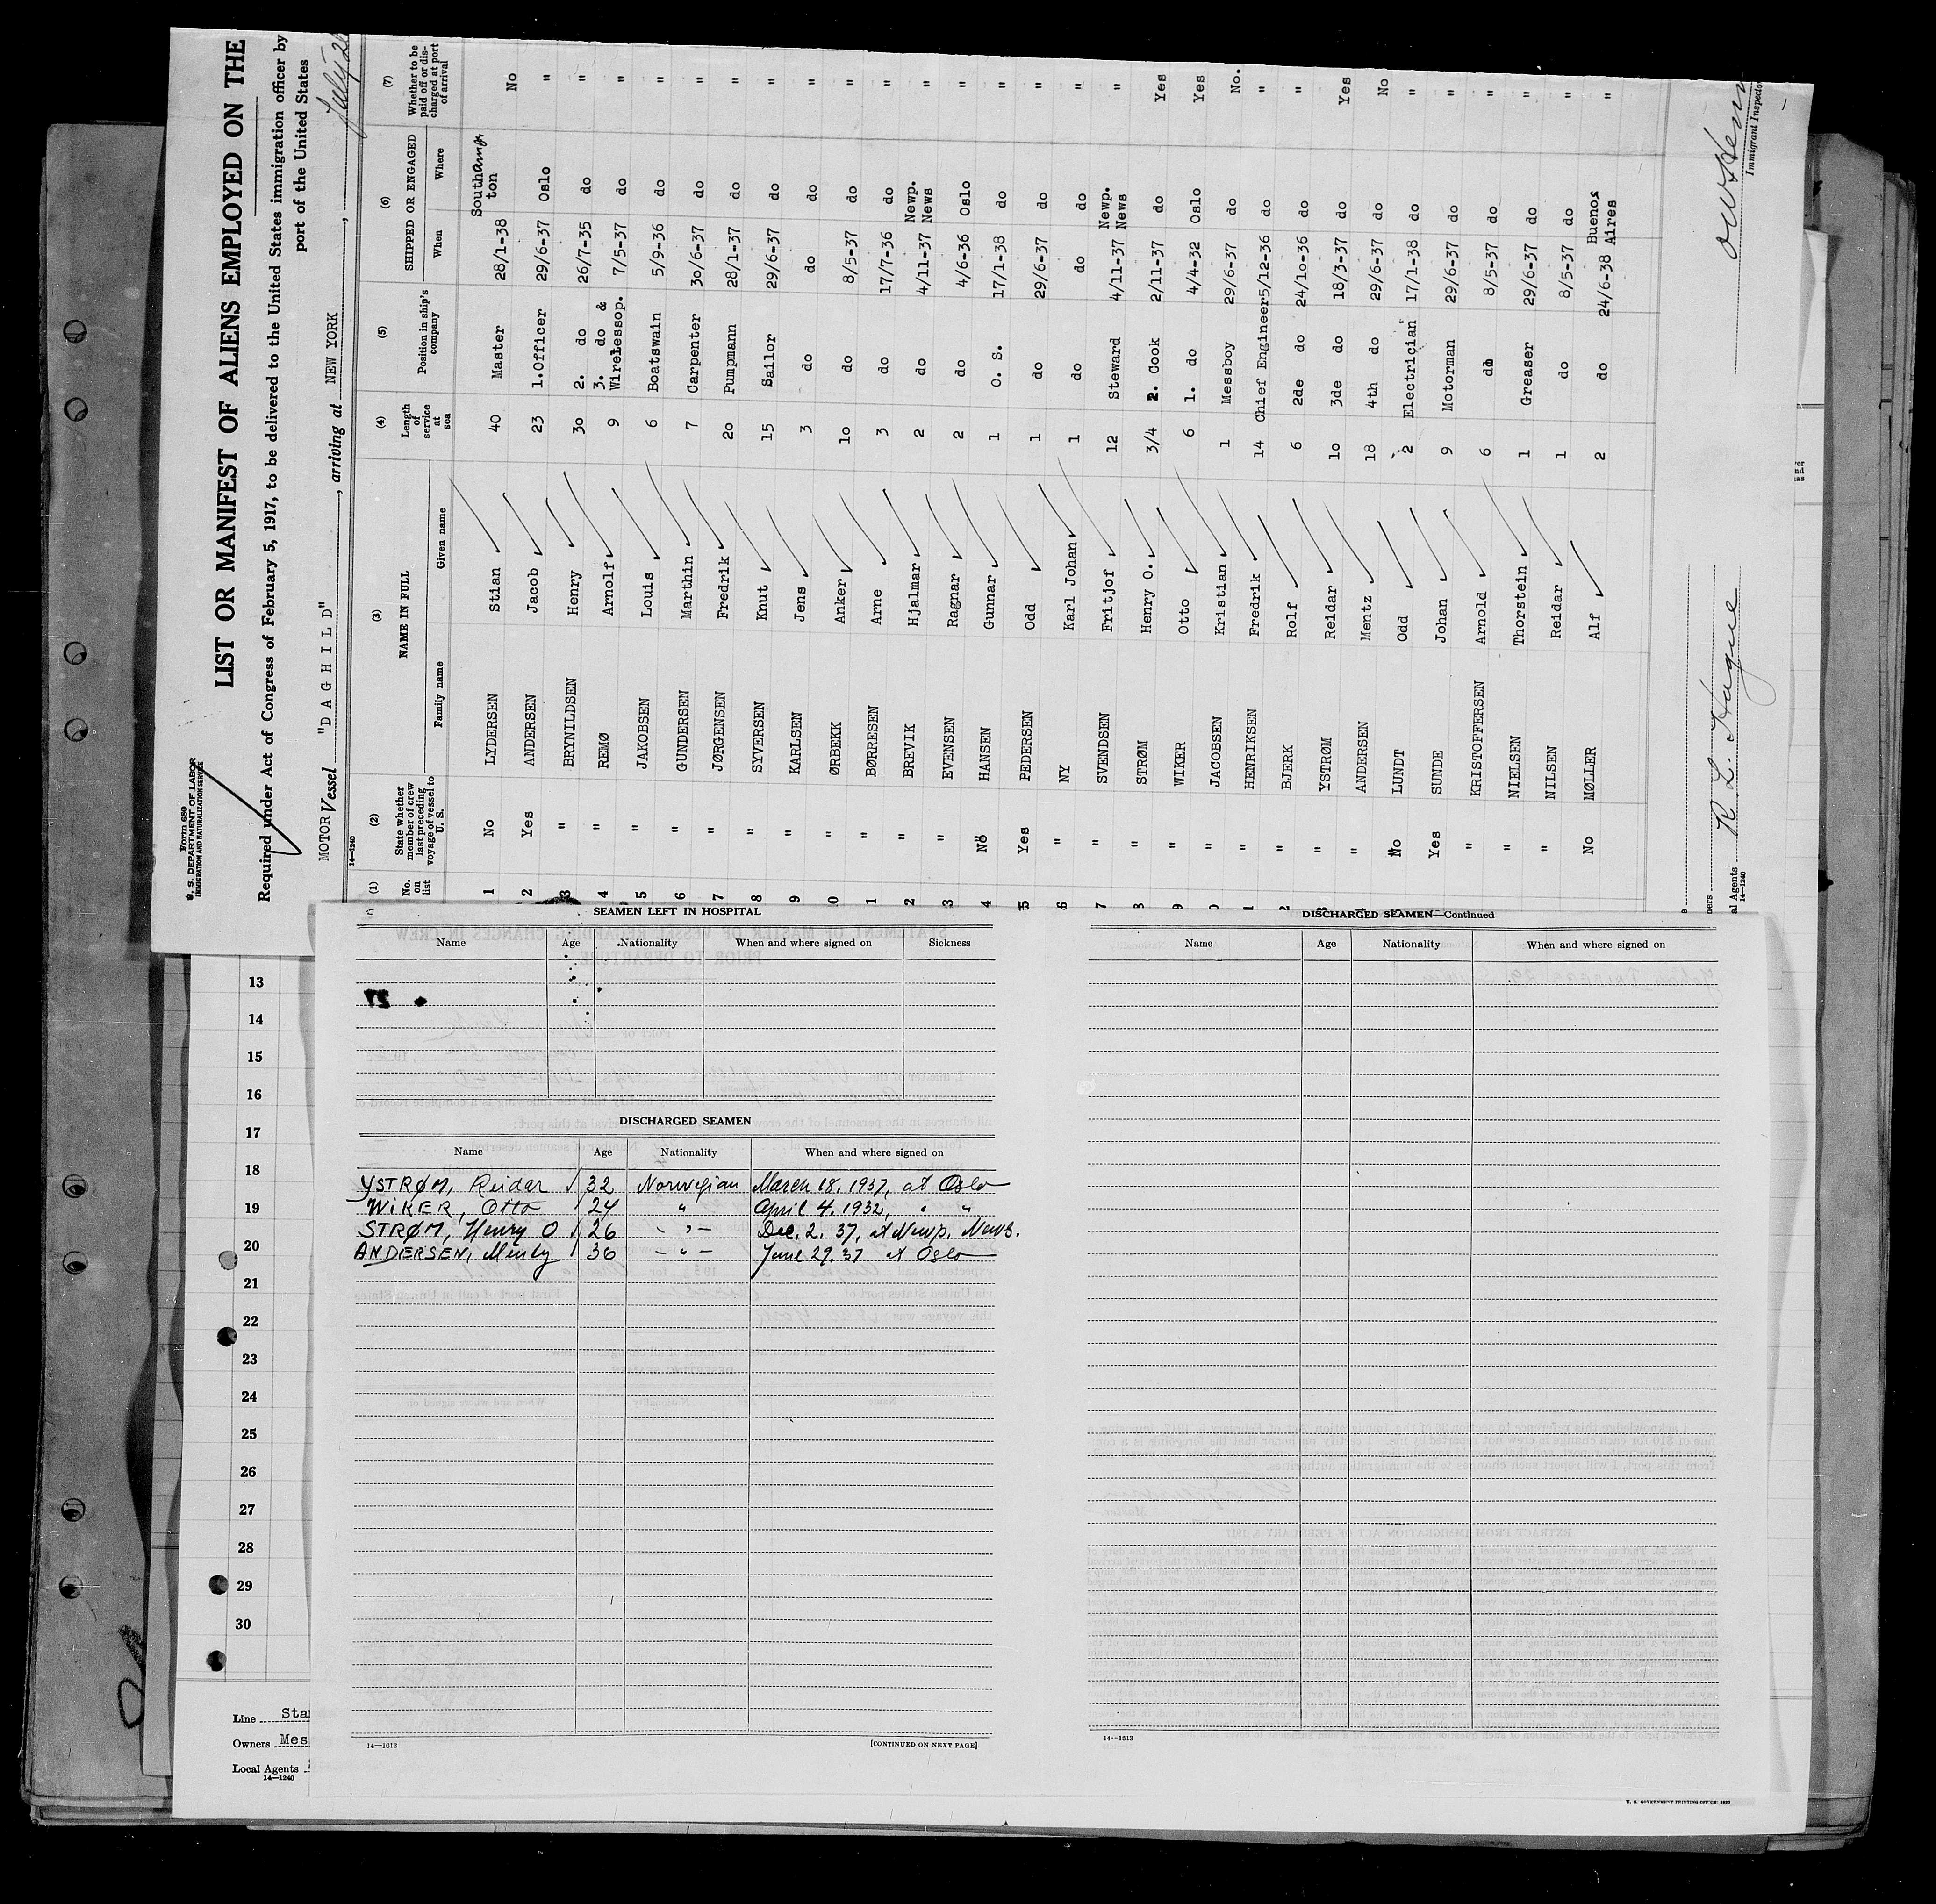 Form 680
U. S. DEPARTMENT OF LABOR
IMMIGRATION AND NATURALIZATION SERVICE
LIST OR MANIFEST OF ALIENS EMPLOYED ON THE
Required under Act of Congress of February 5, 1917, to be delivered to the United States immigration officer by
port of the United States
MOTOR Vessel "DAGHILD", arriving at NEW YORK, July 26
14-1240
(1) (2) (3) (4) (5) (6) (7)
No. on list State whether member of crew last preceding voyage of vessel to U. S. NAME IN FULL Length of service at sea Position in ship's company SHIPPED OR ENGAGED Whether to be paid off or discharged at port of arrival
Family name Given name When Where
1 No LYDERSEN Stian 40 Master 28/1-38 Southampton No
2 Yes ANDERSEN Jacob 23 1.Officer 29/6-37 Oslo "
3 " BRYNILDSEN Henry 30 2. do 26/7-35 do "
4 " REMØ Arnolf 9 3. do & Wirelessop. 7/5-37 do "
5 " JAKOBSEN Louis 6 Boatswain 5/9-36 do "
6 " GUNDERSEN Marthin 7 Carpenter 30/6-37 do "
7 " JØRGENSEN Fredrik 20 Pumpmann 28/1-37 do "
8 " SYVERSEN Knut 15 Sailor 29/6-37 do "
9 " KARLSEN Jens 3 do do do "
0 " ØRBEKK Anker 10 do 8/5-37 do "
1 " BØRRESEN Arne 3 do 17/7-36 do "
2 " BREVIK Hjalmar 2 do 4/11-37 Newp. News "
3 " EVENSEN Ragnar 2 do 4/6-36 Oslo "
4 No HANSEN Gunnar 1 O. S. 17/1-38 do "
5 Yes PEDERSEN Odd 1 do 29/6-37 do "
6 " NY Karl Johan 1 do do do "
7 " SVENDSEN Fritjof 12 Steward 4/11-37 Newp. News "
8 " STRØM Henry O. 3/4 2. Cook 2/11-37 do Yes
9 " WIKER Otto 6 1. do 4/4-32 Oslo Yes
0 " JACOBSEN Kristian 1 Messboy 29/6-37 do No.
1 " HENRIKSEN Fredrik 14 Chief Engineer 5/12-36 do "
2 " BJERK Rolf 6 2de do 24/10-36 do "
3 " YSTRØM Reidar 10 3de do 18/3-37 do Yes
" ANDERSEN Mentz 18 4th do 29/6-37 do No
No LUNDT Odd 2 Electrician 17/1-38 do "
Yes SUNDE Johan 9 Motorman 29/6-37 do "
" KRISTOFFERSEN Arnold 6 do 8/5-37 do "
" NIELSEN Thorstein 1 Greaser 29/6-37 do "
" NILSEN Reidar 1 do 8/5-37 do "
No MØLLER Alf 2 do 24/6-38 Buenos Aires "
R. L. Hague
Immigrant Inspector
al Agents
14-1240
13
14
15
16
17
18
19
20
21
22
23
24
25
26
27
28
29
30
Line Sta
Owners Mes
Local Agents
14-1240
SEAMEN LEFT IN HOSPITAL
Name Age Nationality When and where signed on Sickness
DISCHARGED SEAMEN
Name Age Nationality When and where signed on
YSTRØM, Reidar 32 Norwegian March 18. 1937, at Oslo
WIKER, Otto 24 " April 4. 1932, " "
STRØM, Henry O 26 " Dec. 2. 37, at Newp. News.
ANDERSEN, Mentz 36 " June 29. 37 at Oslo
14-1613
[CONTINUED ON NEXT PAGE]
DISCHARGED SEAMEN—Continued
Name Age Nationality When and where signed on
14-1613
U. S. GOVERNMENT PRINTING OFFICE: 1937